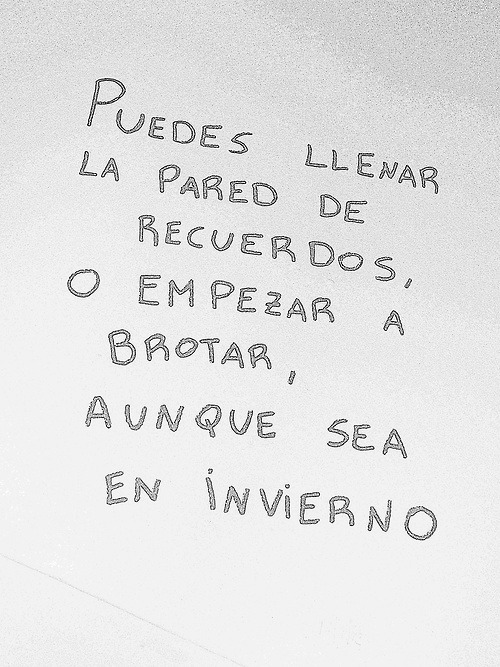 PUEDES LLENAR
LA PARED DE
RECUERDOS,
O EMPEZAR A
BROTAR,
AUNQUE SEA
EN iNViERNO